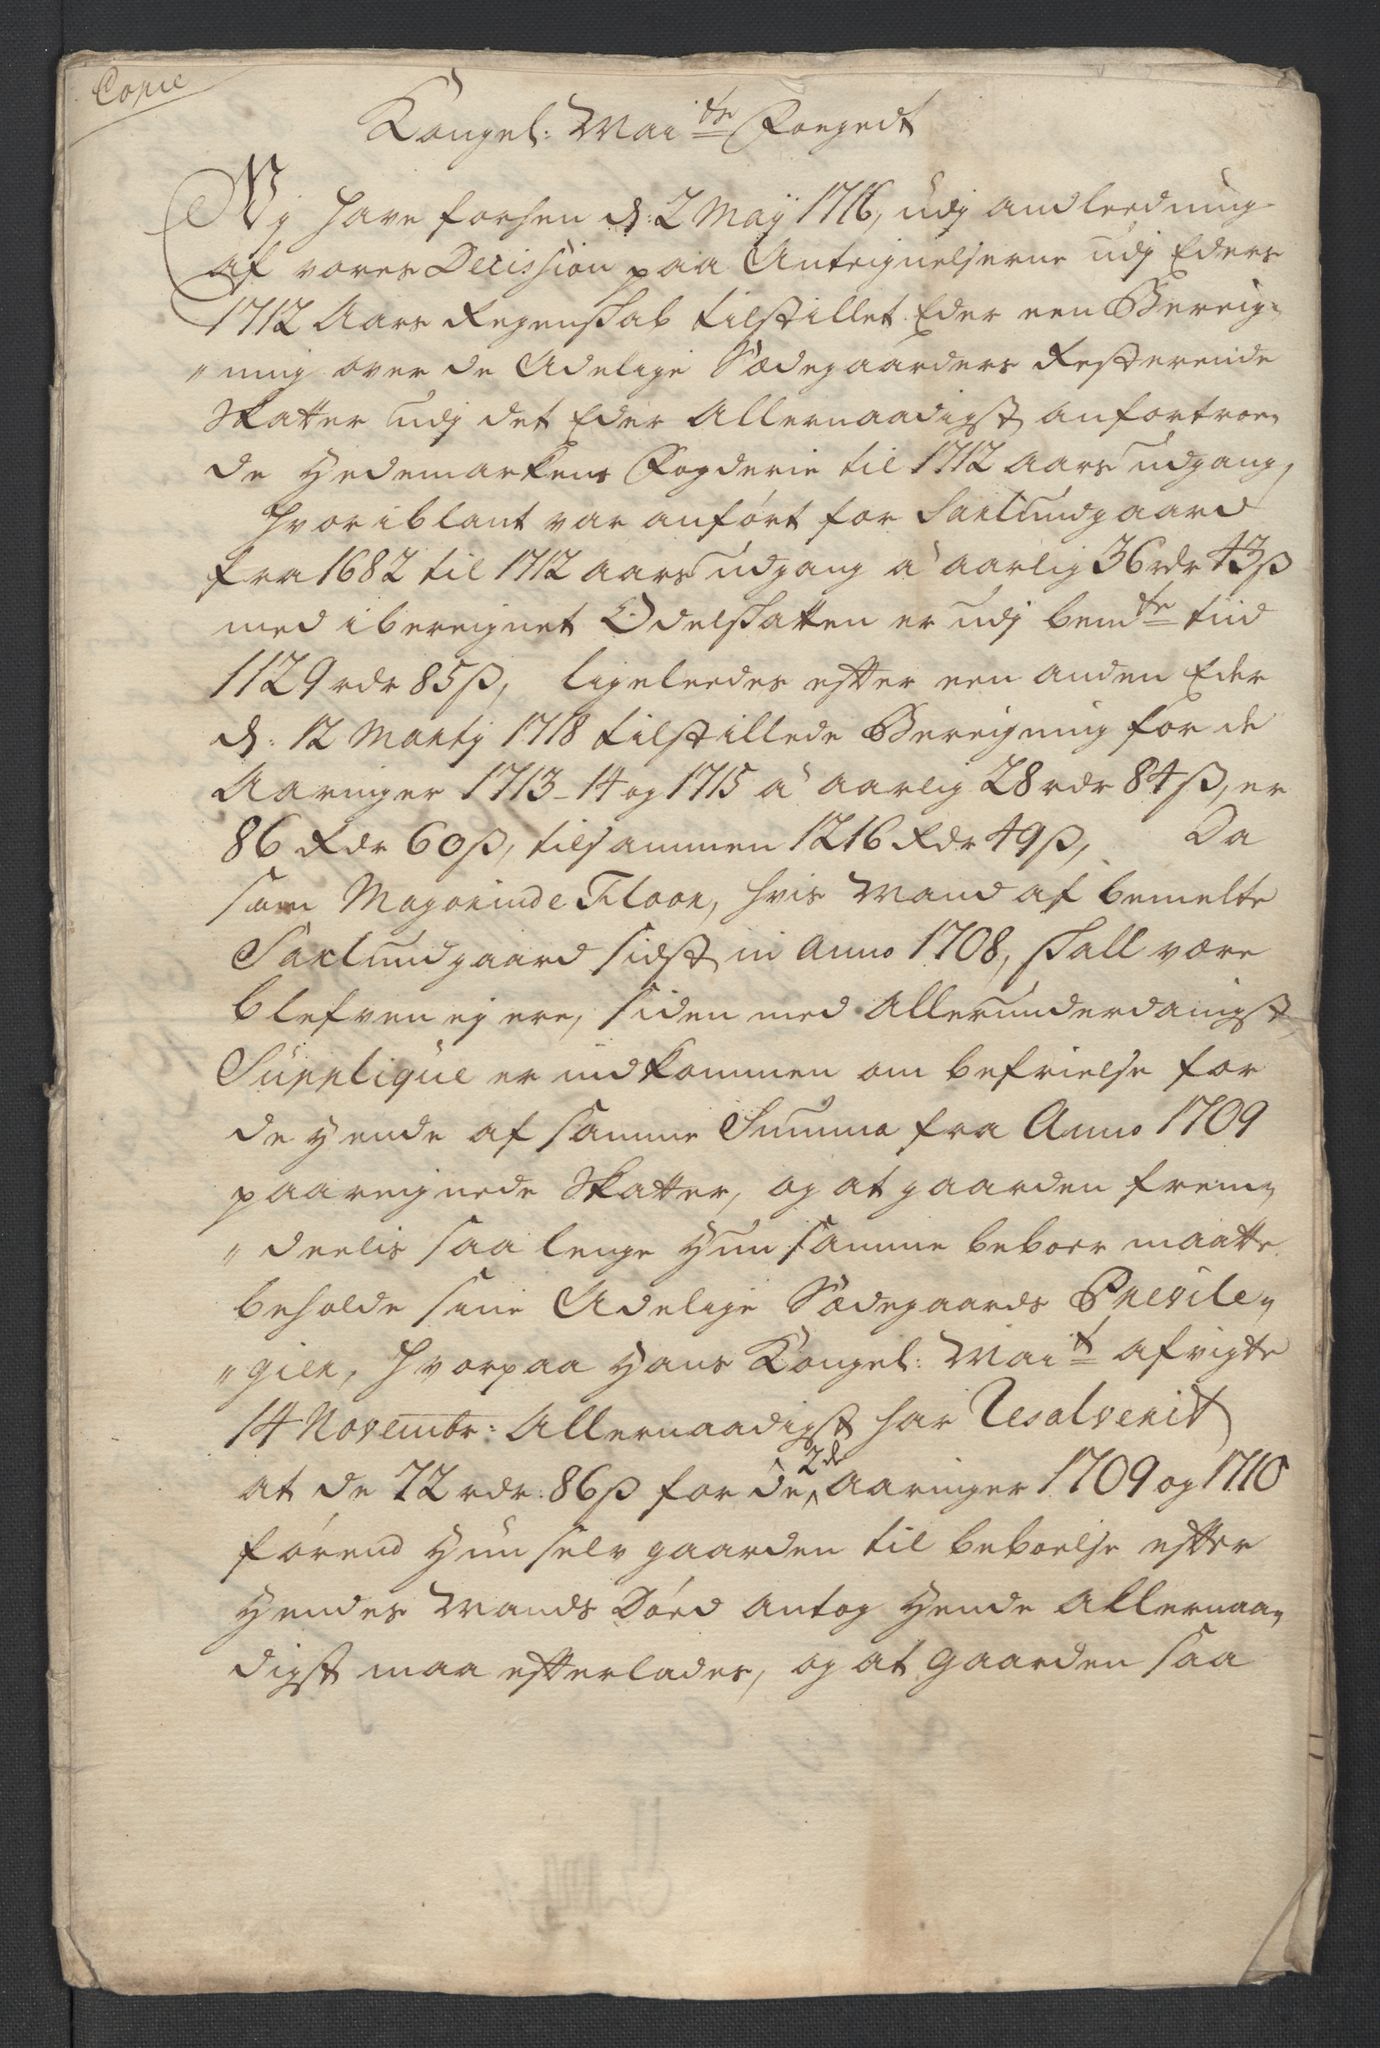 Copie
Kongel: Mai:ts Foegedt
Vy have forhen d: 2 Maÿ 1716, udj andleedning
af vores Decission paa Anteignelserne udj Eders
1712 Aars Regenskab tilstillet Eder een Bereig-
"ning over de Adelige Sædegaarders Resterende
Skatter udj det Eder Allernaadigst anfortroe-
de Hedemarkens Fogderie til 1712 aars udgang,
hvoriblant var anført for Saxlundgaard
fra 1682 til 1712 aars udgang a aarlig 36 rdr 43 ß
med ibereignet Odelskatten er udj bemte tiid
1129 rdr 85 ß, ligeleedes efter een anden Eder
d: 12 Martj 1718 tilstillede Bereigning for de
Aaringer 1713-14 og 1715 a aarlig 28 rdr 84 ß, er
86 Rdr 60 ß, tilsammen 1216 Rdr 49 ß, Da
som Magorinde Floor, hvis Mand af bemelte
Saxlundgaard sidst in Anno 1708, skall være
blefven ejere, siden med allerunderdanigst
Supplique er indkommen om befrielse for
de Hende af samme Summa fra Anno 1709
paareignede Skatter, og at gaarden frem-
"deelis saa lenge Hun samme beboer maatte
beholde sine Adelige Sædegaards Previle-
"gier, hvorpaa Hans Kongel: Mait afvigte
14 Novembr: Allernaadigst har Resolverit
at de 72 rdr: 86 ß for de 2de Aaringer 1709 og 1710
førend Hun selv gaarden til beboelse efter
Hendes Mands Død antog Hende Allernaa-
digst maa efterlades, og at Gaarden saa